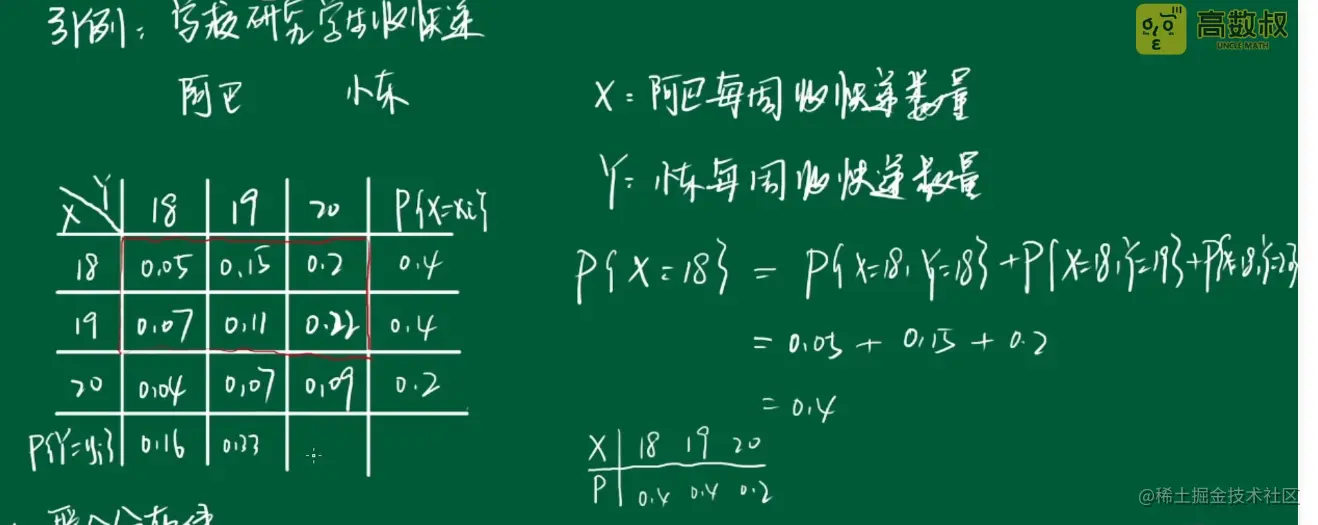 引例：学校研究学生收快递
高数叔
UNCLE MATH
阿巴 小东
X = 阿巴每周收快递数量
Y = 小东每周收快递数量
X Y 18 19 20 P{X=xi}
18 0.05 0.15 0.2 0.4
19 0.07 0.11 0.22 0.4
20 0.04 0.07 0.09 0.2
P{Y=yj} 0.16 0.33
P{X=18} = P{X=18,Y=18}+P{X=18,Y=19}+P{X=18,Y=20}
= 0.05 + 0.15 + 0.2
= 0.4
X 18 19 20
P 0.4 0.4 0.2
@稀土掘金技术社区